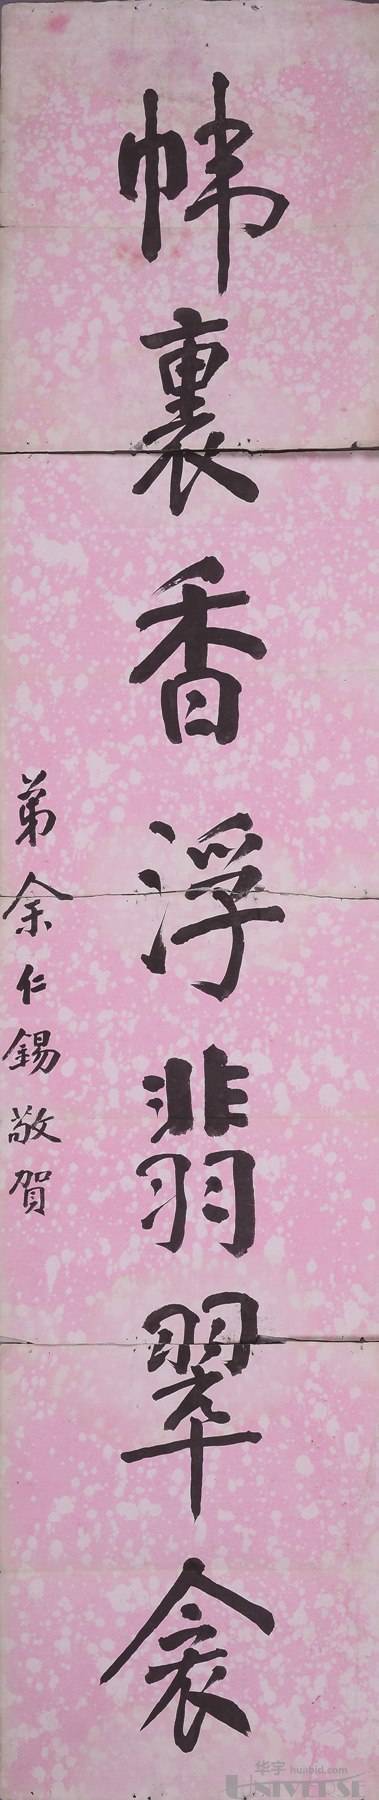 帏裏香浮翡翠衾
弟余仁錫敬賀
华宇 huabid.com
UNIVERSE